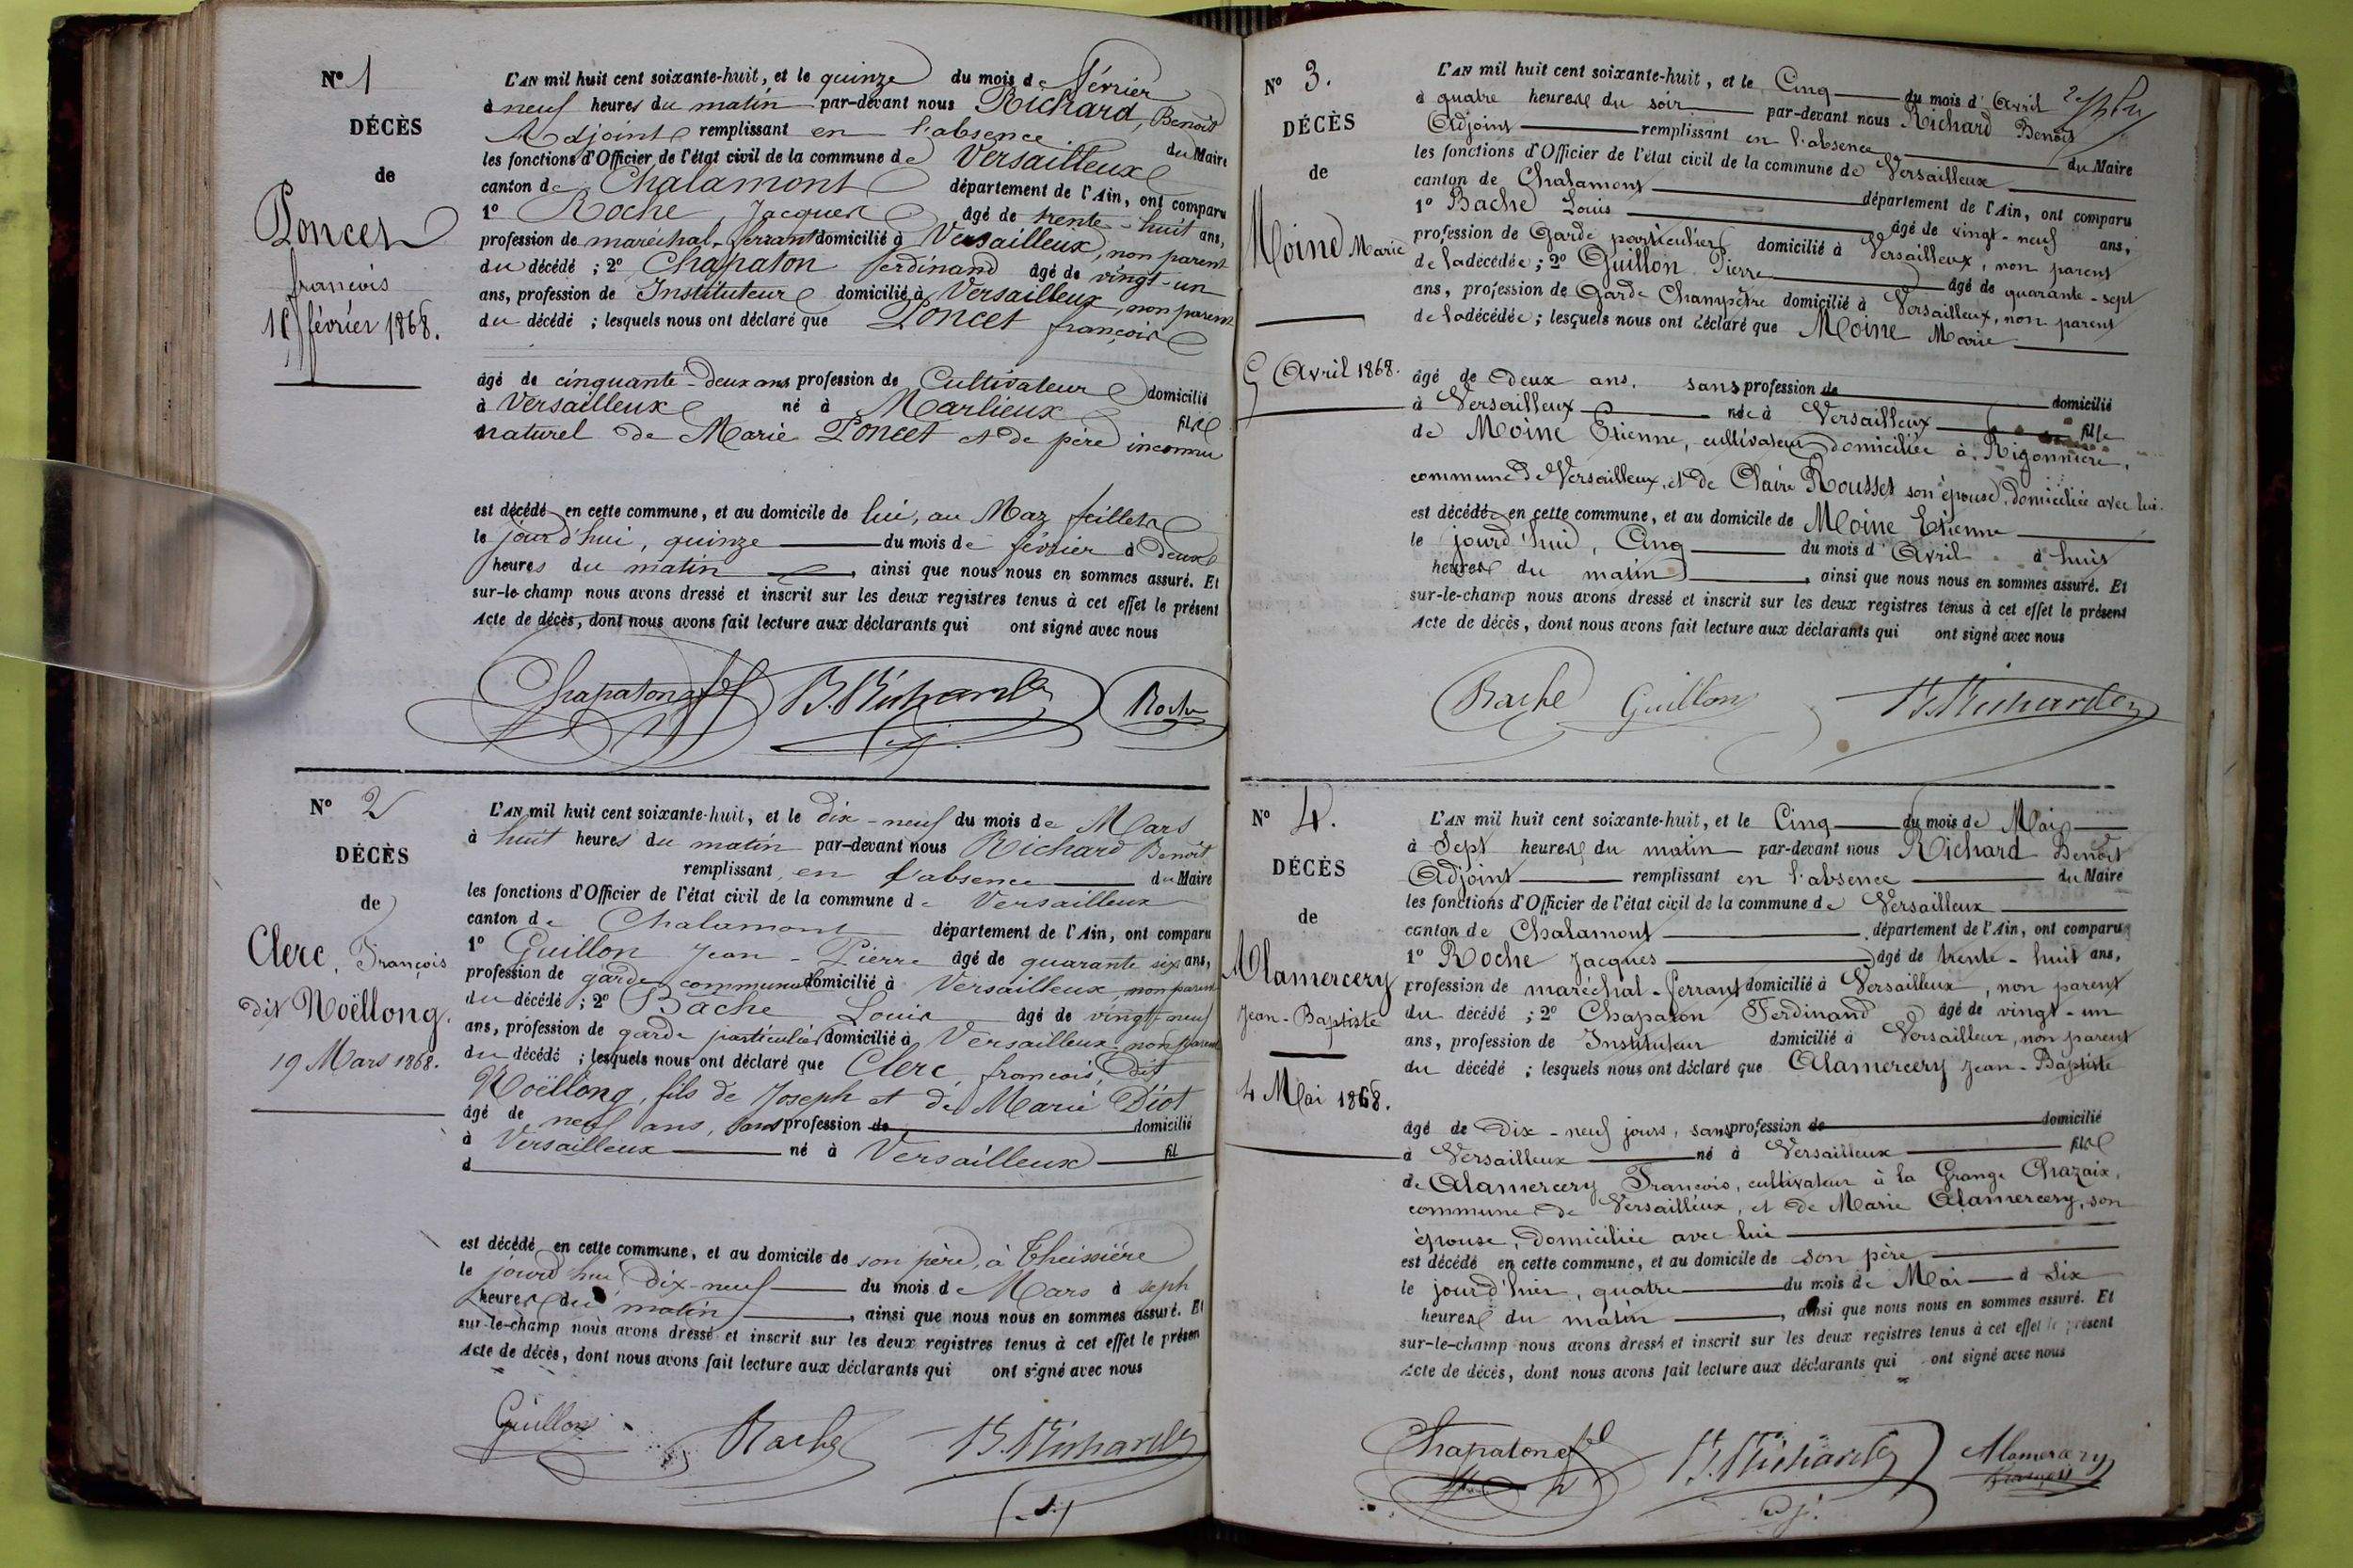 N° 1
DÉCÈS
de
Poncet
francois
15 février 1868.
L'AN mil huit cent soixante-huit, et le quinze du mois de février
à neuf heures du matin par-devant nous Richard, Benoît
Adjoint remplissant en l'absence du Maire
les fonctions d'Officier de l'état civil de la commune de Versailleux
canton de Chalamont département de l'Ain, ont comparu
1° Roche, Jacques âgé de trente-huit ans,
profession de maréchal-ferrant domicilié à Versailleux, non parent
du décédé ; 2° Chapaton ferdinand âgé de vingt-un
ans, profession de Instituteur domicilié à Versailleux, non parent
du décédé ; lesquels nous ont déclaré que Poncet françois
âgé de cinquante-deux ans profession de Cultivateur domicilié
à Versailleux né à Marlieux fils
naturel de Marie Poncet et de père inconnu
est décédé en cette commune, et au domicile de lui, au Maz feillet
le jourd'hui, quinze du mois de février à deux
heures du matin, ainsi que nous nous en sommes assuré. Et
sur-le-champ nous avons dressé et inscrit sur les deux registres tenus à cet effet le présent
Acte de décès, dont nous avons fait lecture aux déclarants qui ont signé avec nous
Chapaton fd B. Richard Roche
N° 2
DÉCÈS
de
Clerc, François
dit Noëllong.
19 Mars 1868.
L'AN mil huit cent soixante-huit, et le dix-neuf du mois de Mars
à huit heures du matin par-devant nous Richard Benoît
remplissant en l'absence du Maire
les fonctions d'Officier de l'état civil de la commune de Versailleux
canton de Chalamont département de l'Ain, ont comparu
1° Guillon Jean-Pierre âgé de quarante six ans,
profession de garde communal domicilié à Versailleux, non parent
du décédé ; 2° Bache Louis âgé de vingt-neuf
ans, profession de garde particulier domicilié à Versailleux, non parent
du décédé ; lesquels nous ont déclaré que Clerc, francois, dit
Noëllong, fils de Joseph et de Marie Diot
âgé de neuf ans, sans profession de domicilié
à Versailleux né à Versailleux fil
d
est décédé en cette commune, et au domicile de son père, à Theissière
le jourd'hui dix-neuf du mois de Mars à sept
heures du matin, ainsi que nous nous en sommes assuré. Et
sur-le-champ nous avons dressé et inscrit sur les deux registres tenus à cet effet le présen
Acte de décès, dont nous avons fait lecture aux déclarants qui ont signé avec nous
Guillon Bache B. Richard
N° 3.
DÉCÈS
de
Moine Marie
5 Avril 1868.
L'AN mil huit cent soixante-huit, et le Cinq du mois d'Avril
à quatre heures du soir par-devant nous Richard Benoît
Adjoint remplissant en l'absence du Maire
les fonctions d'Officier de l'état civil de la commune de Versailleux
canton de Chalamont département de l'Ain, ont comparu
1° Bache Louis âgé de vingt-neuf ans,
profession de Garde particulier domicilié à Versailleux, non parent
de la décédée ; 2° Guillon Pierre âgé de quarante-sept
ans, profession de Garde Champêtre domicilié à Versailleux, non parent
de la décédée ; lesquels nous ont déclaré que Moine Marie
âgé de deux ans, sans profession de domicilié
à Versailleux née à Versailleux fille
de Moine Etienne, cultivateur domiciliée à Rigonnière,
commune de Versailleux, et de Claire Rousset son épouse, domiciliée avec lui.
est décédée en cette commune, et au domicile de Moine Etienne
le jourd'hui, Cinq du mois d'Avril à huit
heures du matin, ainsi que nous nous en sommes assuré. Et
sur-le-champ nous avons dressé et inscrit sur les deux registres tenus à cet effet le présent
Acte de décès, dont nous avons fait lecture aux déclarants qui ont signé avec nous
Bache Guillon B. Richard
N° 4.
DÉCÈS
de
Alamercery
Jean-Baptiste
4 Mai 1868.
L'AN mil huit cent soixante-huit, et le Cinq du mois de Mai
à Sept heures du matin par-devant nous Richard Benoît
Adjoint remplissant en l'absence du Maire
les fonctions d'Officier de l'état civil de la commune de Versailleux
canton de Chalamont département de l'Ain, ont comparu
1° Roche Jacques âgé de trente-huit ans,
profession de maréchal-ferrant domicilié à Versailleux, non parent
du décédé ; 2° Chapaton Ferdinand âgé de vingt-un
ans, profession de Instituteur domicilié à Versailleux, non parent
du décédé ; lesquels nous ont déclaré que Alamercery Jean-Baptiste
âgé de Dix-neuf jours, sans profession de domicilié
à Versailleux né à Versailleux fils
de Alamercery François, cultivateur à la Grange Chazaix,
commune de Versailleux, et de Marie Alamercery, son
épouse, domiciliée avec lui
est décédé en cette commune, et au domicile de son père
le jourd'hier, quatre du mois de Mai à Six
heures du matin, ainsi que nous nous en sommes assuré. Et
sur-le-champ nous avons dressé et inscrit sur les deux registres tenus à cet effet le présent
Acte de décès, dont nous avons fait lecture aux déclarants qui ont signé avec nous
Chapaton fd B. Richard adj. Alamercery
françois